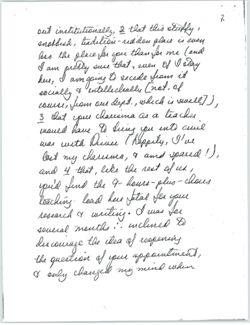 2
out institutionally, 2 that this stuffy,
snobbish, tradition-ridden place is even
less the place for you than for me (and
I am pretty sure that, even if I stay
here, I am going to secede from it
socially & intellectually [not, of
course, from our dept., which is swell]),
3 that your charisma as a teacher
would have to bring you into civil
war with Driver (Happily, I've
lost my charisma, & am spared!),
and 4 that, like the rest of us,
you'd find the 9-hours-plus-chores
teaching load here fatal for your
research & writing. I was for
several months ∴ inclined to
discourage the idea of reopening
the question of your appointment,
& only changed my mind when